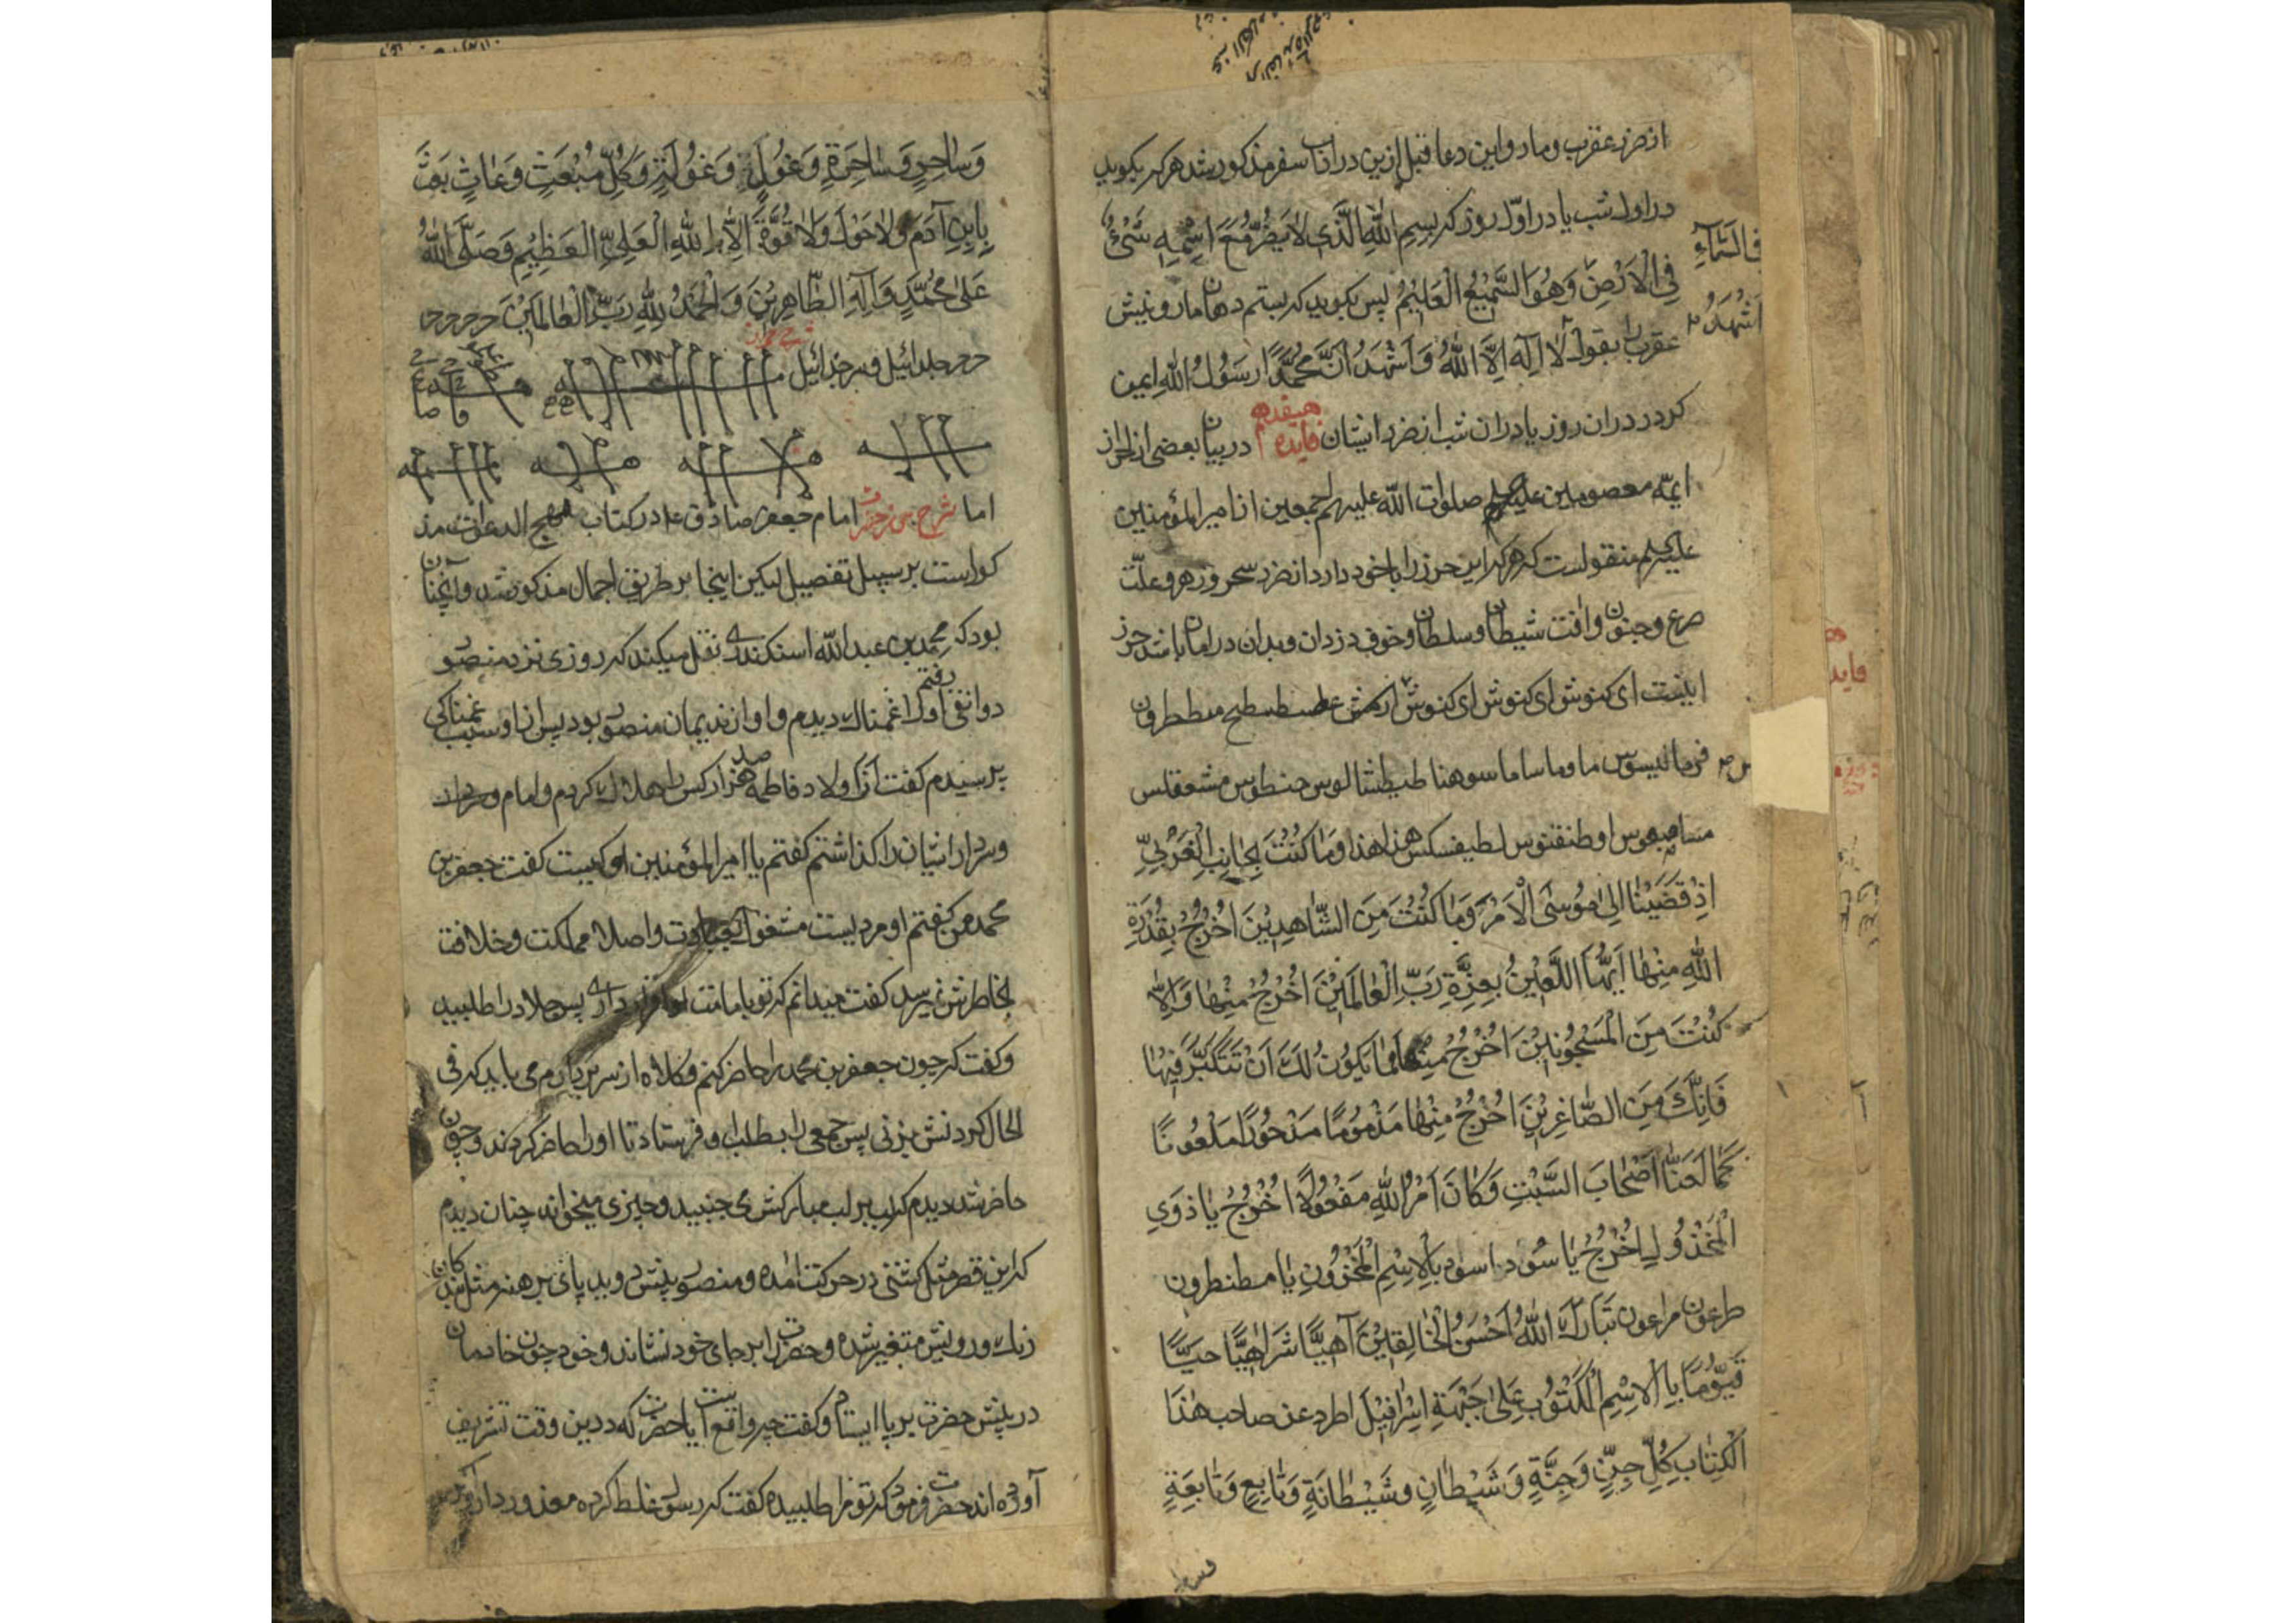 از ضرر عقرب و مار و این دعا قبل ازین در اداب سفر مذکور شد هر که بکوید
در اول شب یا در اوّل روز که بِسمِ اللّٰهِ الَّذی لاٰ یَضُرُّ مَعَ اِسْمِهِ شَیْءٌ
فِی الْاَرْضِ وَهُوَ السَّمیٖعُ الْعَلیٖمُ پس بکوید که بستم دهان مار و نیش
فِی السَّمٰآءِ
عقرب را بقول لاٰ اِلٰهَ اِلاَّ اللّٰهُ وَ اَشْهَدُ اَنَّ مُحَمَّدًا رَسُولُ اللّٰهِ ایمن
اَشْهَدُ
کردد در ان روز یا در ان شب از ضرر ایشان فایده هیفدهم در بیان بعضی از احراز
ایمّه معصومین صلوات اللّه علیهم اجمعین از امیر المؤمنین
علیه السلم منقولست که هر که این حرز را با خود دارد از ضرر سحر و زهر و علّت
صرع و جنون و افت شیطان و سلطان و خوف دزدان و بدان در امان باشد حرز
اینست ای کنوش ای کنوش ای کنوش ارکنش عطسطسطیح مططرون
قرمالیسوس ما وما ساما سوهنا طیطشالوس حنطوس مشعقلس
مساصعوس اوطنقنوس لطیفسکس هذا هذا وَمٰا کُنْتَ بِجٰانِبِ الْغَرْبِیِّ
اِذْ قَضَیْنٰا اِلیٰ مُوسَی الْاَمْرَ وَمٰا کُنْتَ مِنَ الشّٰاهِدیٖنَ اُخْرُجْ بِقُدْرَةِ
اللّٰهِ مِنْهٰا اَیُّهَا اللَّعیٖنُ بِعِزَّةِ رَبِّ الْعٰالَمیٖنَ اُخْرُجْ مِنْهٰا وَاِلاّٰ
کُنْتَ مِنَ الْمَسْجُونیٖنَ اُخْرُجْ مِنْهٰا فَمٰا یَکُونُ لَکَ اَنْ تَتَکَبَّرَ فیٖهٰا
فَاِنَّکَ مِنَ الصّٰاغِریٖنَ اُخْرُجْ مِنْهٰا مَذْمُومًا مَدْحُورًا مَلْعُونًا
کَمٰا لَعَنّٰا اَصْحٰابَ السَّبْتِ وَکٰانَ اَمْرُ اللّٰهِ مَفْعُولاً اُخْرُجْ یٰا ذَوِی
الْمَخْذُولِ اُخْرُجْ یٰا سُورا سور بِالْاِسْمِ الْمَخْزُونِ یٰا مططرون
طرعون مراعون تَبٰارَکَ اللّٰهُ اَحْسَنُ الْخٰالِقیٖنَ آهِیًّا شَرٰاهِیًّا حَیًّا
قَیُّومًا بِالْاِسْمِ الْمَکْتُوبِ عَلیٰ جَبْهَةِ اِسْرٰافیٖلَ اطرد عن صاحب هٰذَا
الْکِتٰابِ کُلَّ جِنٍّ وَجِنَّةٍ وَشَیْطٰانٍ وشَیْطٰانَةٍ وَتٰابِعٍ وَتٰابِعَةٍ
وَسٰاحِرٍ وَسٰاحِرَةٍ وَغُولٍ وَغُولَةٍ وَکُلَّ مُتَعَبِّثٍ وَعٰابِثٍ یَعْبَثُ
بِابْنِ آدَمَ وَلاٰ حَوْلَ وَلاٰ قُوَّةَ اِلاّٰ بِاللّٰهِ الْعَلِیِّ الْعَظیٖمِ وَصَلَّی اللّٰهُ
عَلیٰ مُحَمَّدٍ وَآلِهِ الطّٰاهِریٖنَ وَ الْحَمْدُ لِلّٰهِ رَبِّ الْعٰالَمیٖنَ
اما شرح امام جعفر صادق ع در کتاب مهج الدعوات مذ
کور است بر سبیل تفصیل لیکن اینجا بر طریق اجمال مذکور شد و آنچنان
بود که محمد بن عبد اللّه اسکندری نقل میکند که روزی نزد منصور
دوانقی رفتم او را غمناک دیدم و او از ندیمان منصور بود پس از او سبب غمناکی
پرسیدم کفت از اولاد فاطمه صد هزار کس را هلاک کردم و امام
و سردار ایشان را کذاشتم کفتم یا امیر المؤمنین او کیست کفت جعفر بن
محمد من کفتم او مردیست مشغول بعبادت و اصلا مملکت و خلافت
بخاطرش نمیرسد کفت میدانم که تو بامامت او اقرار داری پس جلاد را طلبید
و کفت که چون جعفر بن محمد را حاضر کنم و کلاه از سر بردارم می باید که فی
الحال کردنش بزنی پس جمعی را بطلب او فرستاد تا او را حاضر کردند و چون
حاضر شد دیدم که لب مبارکش می جنبید و چیزی میخواند چنان دیدم
که این قصر مثل کشتی در حرکت امده و منصور پیش دوید پای برهنه مثل بندکان
رنک و رویش متغیر شده و حضرت را بر جای خود نشاند و خود چون خادمان
در پیش حضرت بر پا ایستاد و کفت چه واقع است یا حضرت که درین وقت تشریف
آورده اند حضرت فرمود که تو مرا طلبیده کفت که رسول غلط کرده معذور دار